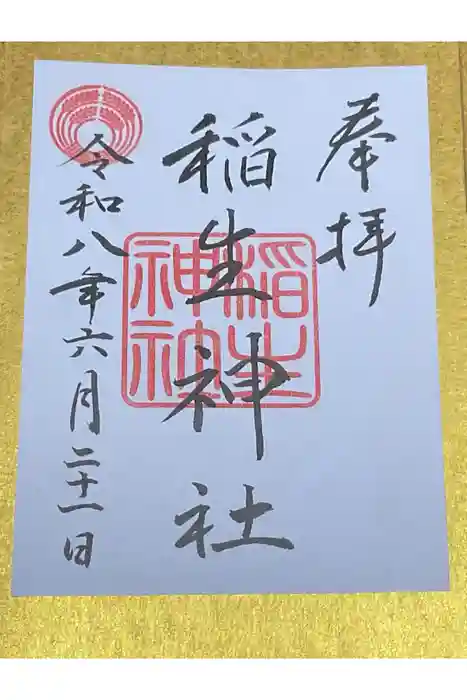 奉拝
稲生神社
稲生
神社
令和八年六月二十一日